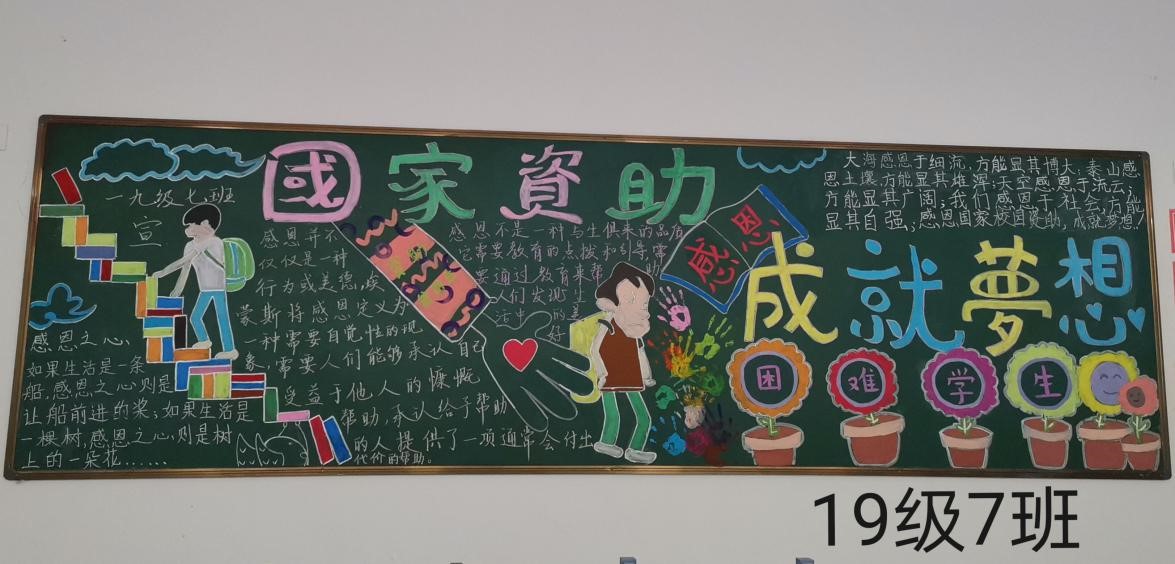 國家資助
成就夢想
一九级七班
宣
感恩之心,
如果生活是一条
船,感恩之心则是
让船前进的桨;如果生活是
一棵树,感恩之心,则是树
上的一朵花……
感恩并不
仅仅是一种
行为或美德,埃
蒙斯将感恩定义为
一种需要自觉性的现
象,需要人们能够承认自己
受益于他人的慷慨
帮助,承认给予帮助
的人提供了一项通常会付出
代价的帮助。
感恩不是一种与生俱来的品质
它需要教育的点拨和引导,需
要通过教育来帮 助
人们发现生
活中 的美
好
感恩
大海感恩于细流,方能显其博大;泰山感
恩土壤,方能显其雄浑;天空感恩于流云,
方能显其广阔;我们感恩于社会,方能
显其自强;感恩国家校园资助,成就梦想!
困难学生
19级7班